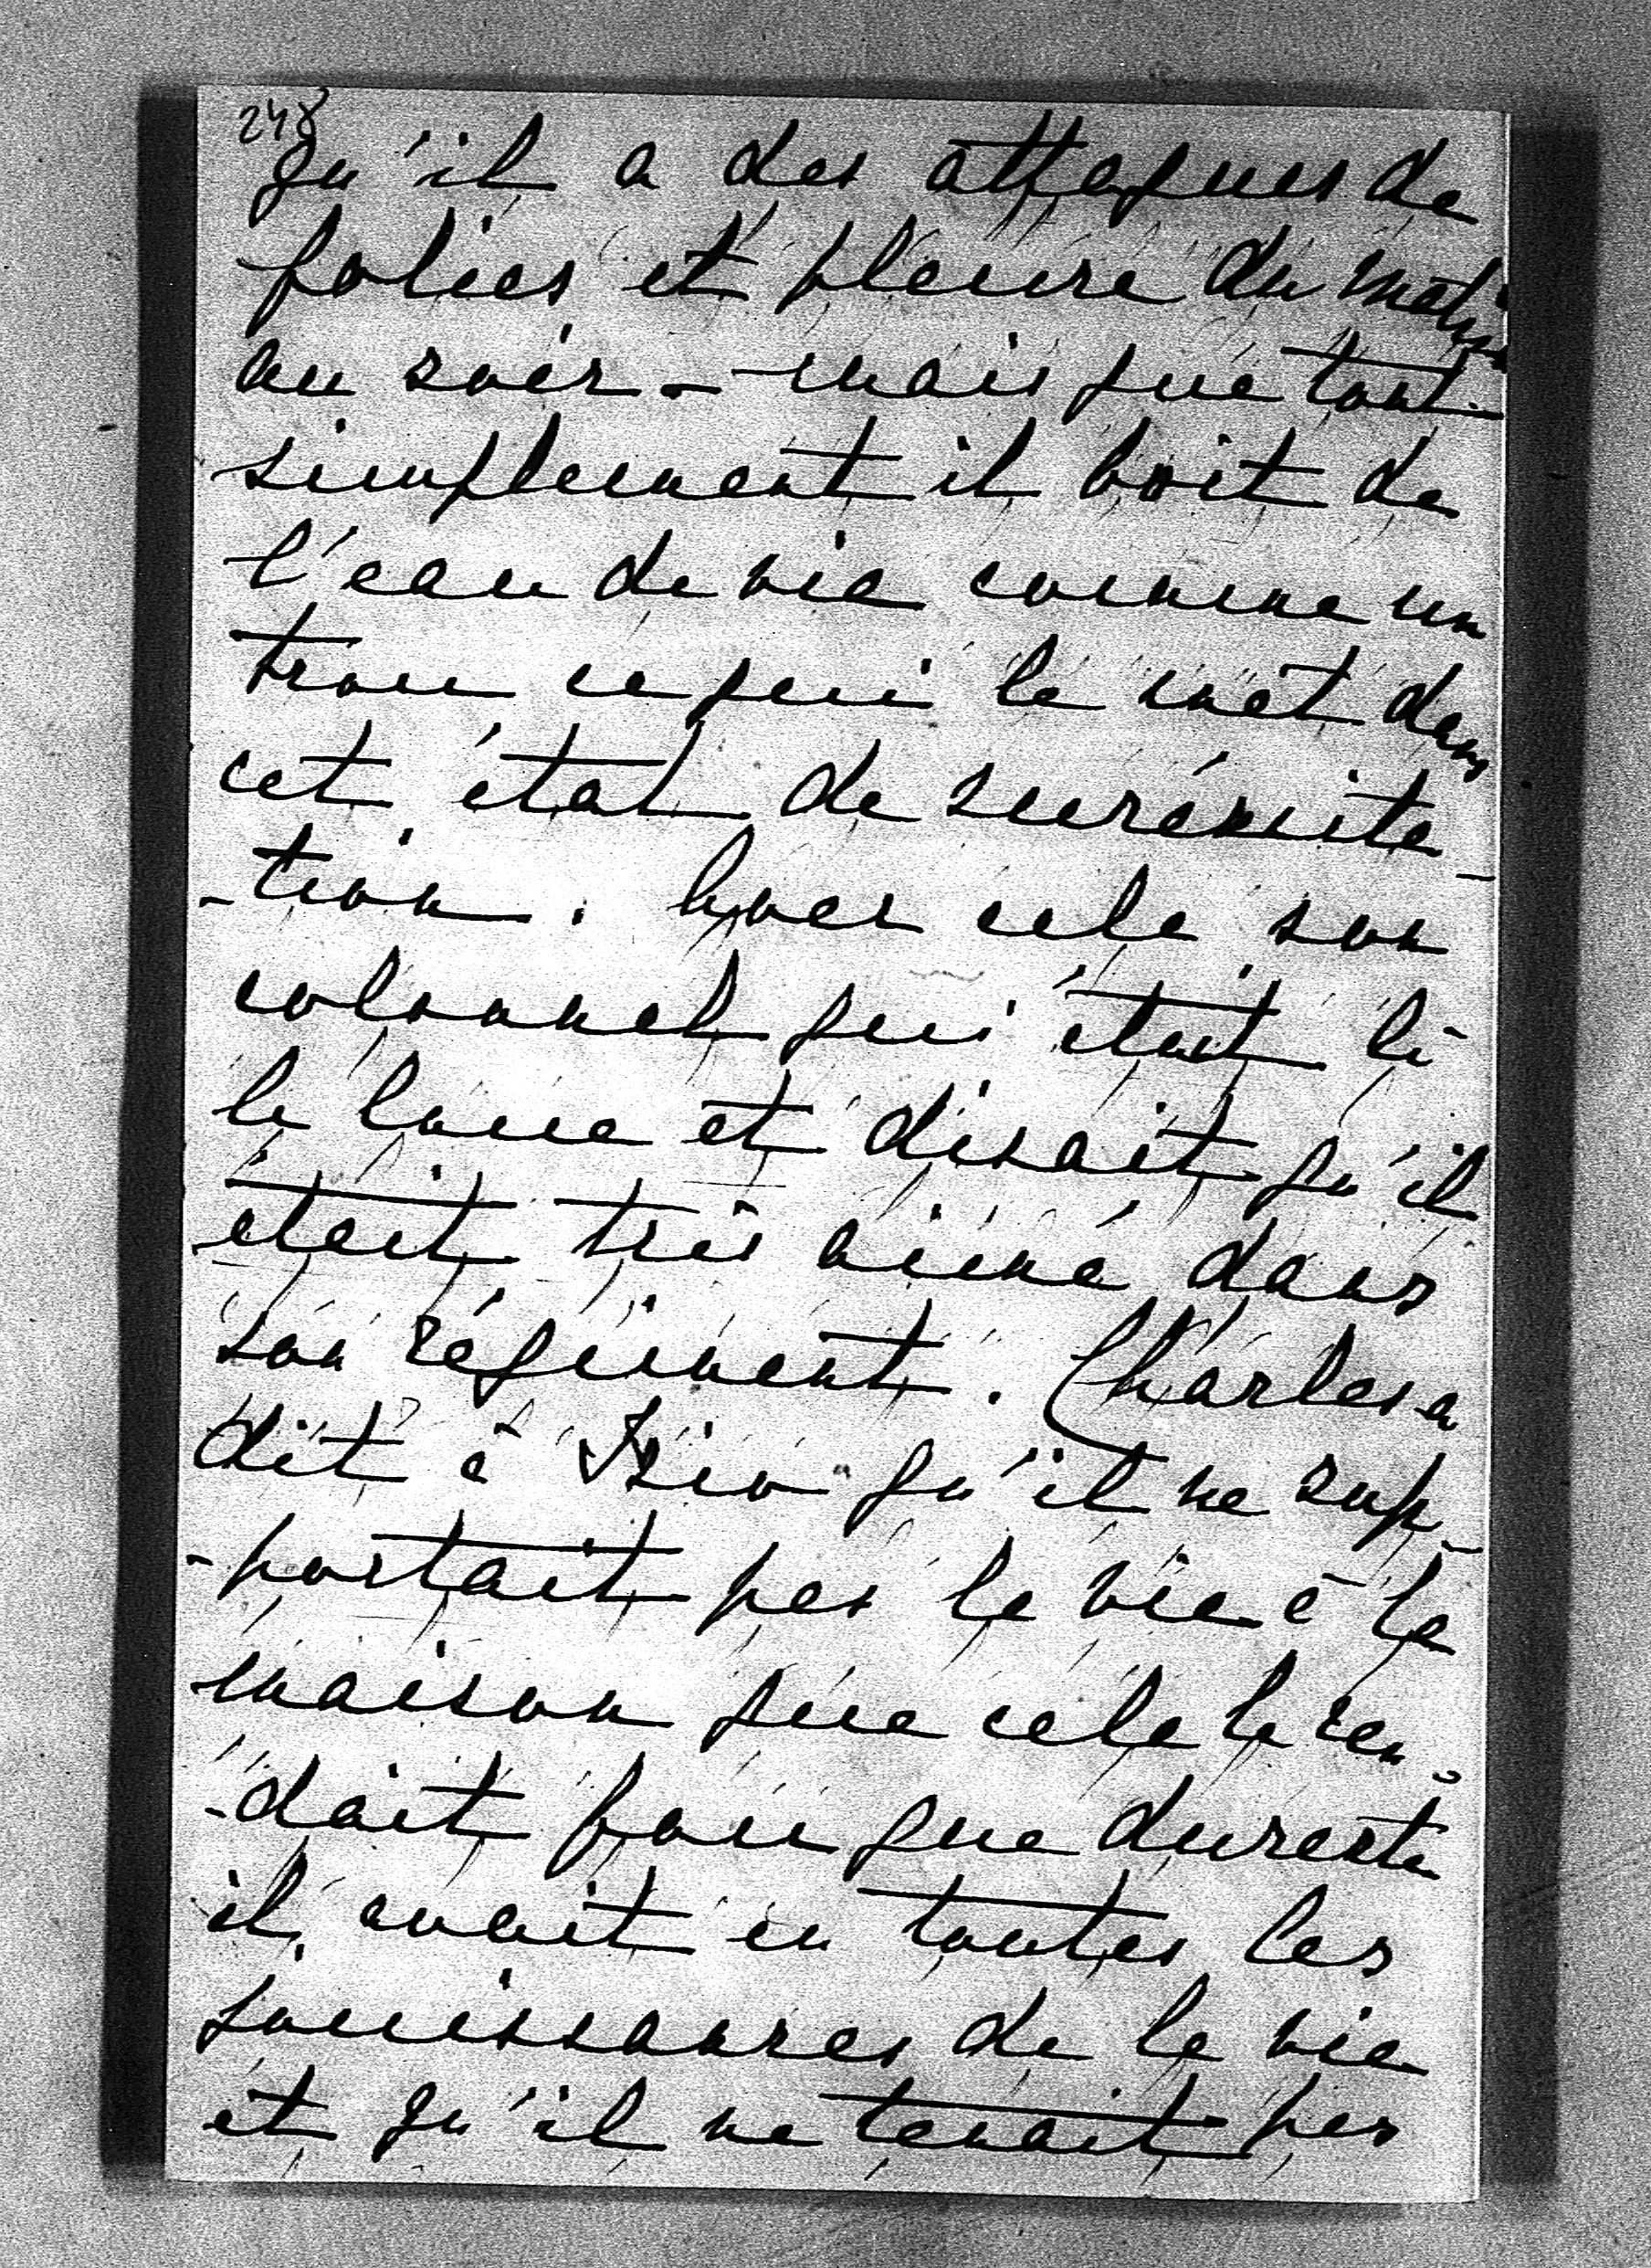 248
qu'il a des attaques de
folies et pleure du matin
au soir – mais que tout
simplement il boit de
l'eau de vie comme un
trou ce qui le met dans
cet état de surexcita-
-tion. Avec cela son
colonnel qui était là
le loue et disait qu'il
était très aimé dans
son régiment. Charles a
dit à qu'il ne sup-
-portait pas la vie à la
maison que cela le ren-
-dait fou que dureste
il avait eu toutes les
jouissances de la vie
et qu'il ne tenait pas